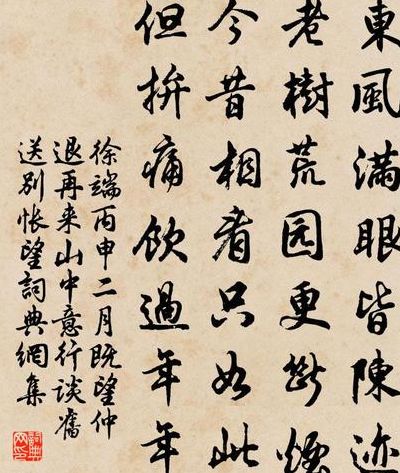 東風滿眼皆陳迹
老樹荒园更斷煙
今昔相看只如此
但拚痛飲過年年
徐端丙申二月既望仲
退再来山中意行談舊
送别怅望詞典網集
詞典网印